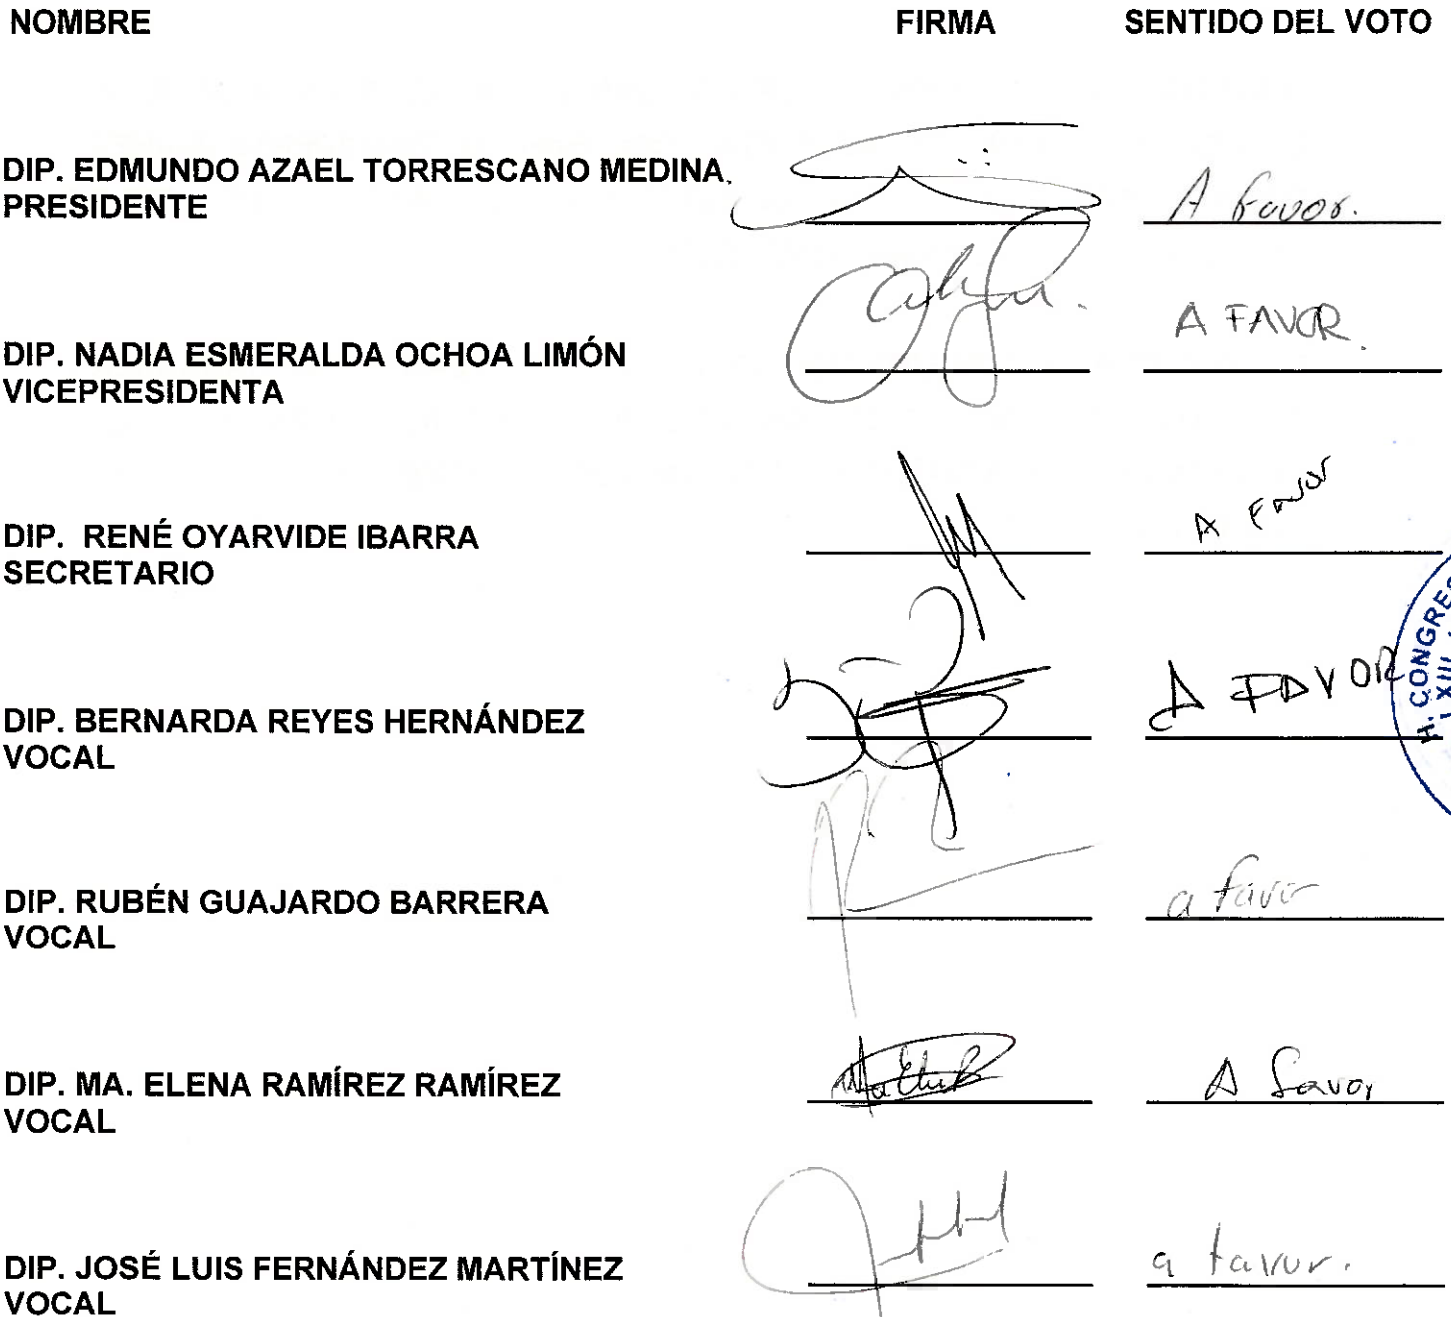 NOMBRE FIRMA SENTIDO DEL VOTO
DIP. EDMUNDO AZAEL TORRESCANO MEDINA.
PRESIDENTE
A favor.
DIP. NADIA ESMERALDA OCHOA LIMÓN
VICEPRESIDENTA
A FAVOR.
DIP. RENÉ OYARVIDE IBARRA
SECRETARIO
A FAVOR
DIP. BERNARDA REYES HERNÁNDEZ
VOCAL
A FAVOR
H. CONGRES
LXII
DIP. RUBÉN GUAJARDO BARRERA
VOCAL
a favor
DIP. MA. ELENA RAMÍREZ RAMÍREZ
VOCAL
A favor
DIP. JOSÉ LUIS FERNÁNDEZ MARTÍNEZ
VOCAL
a favor.